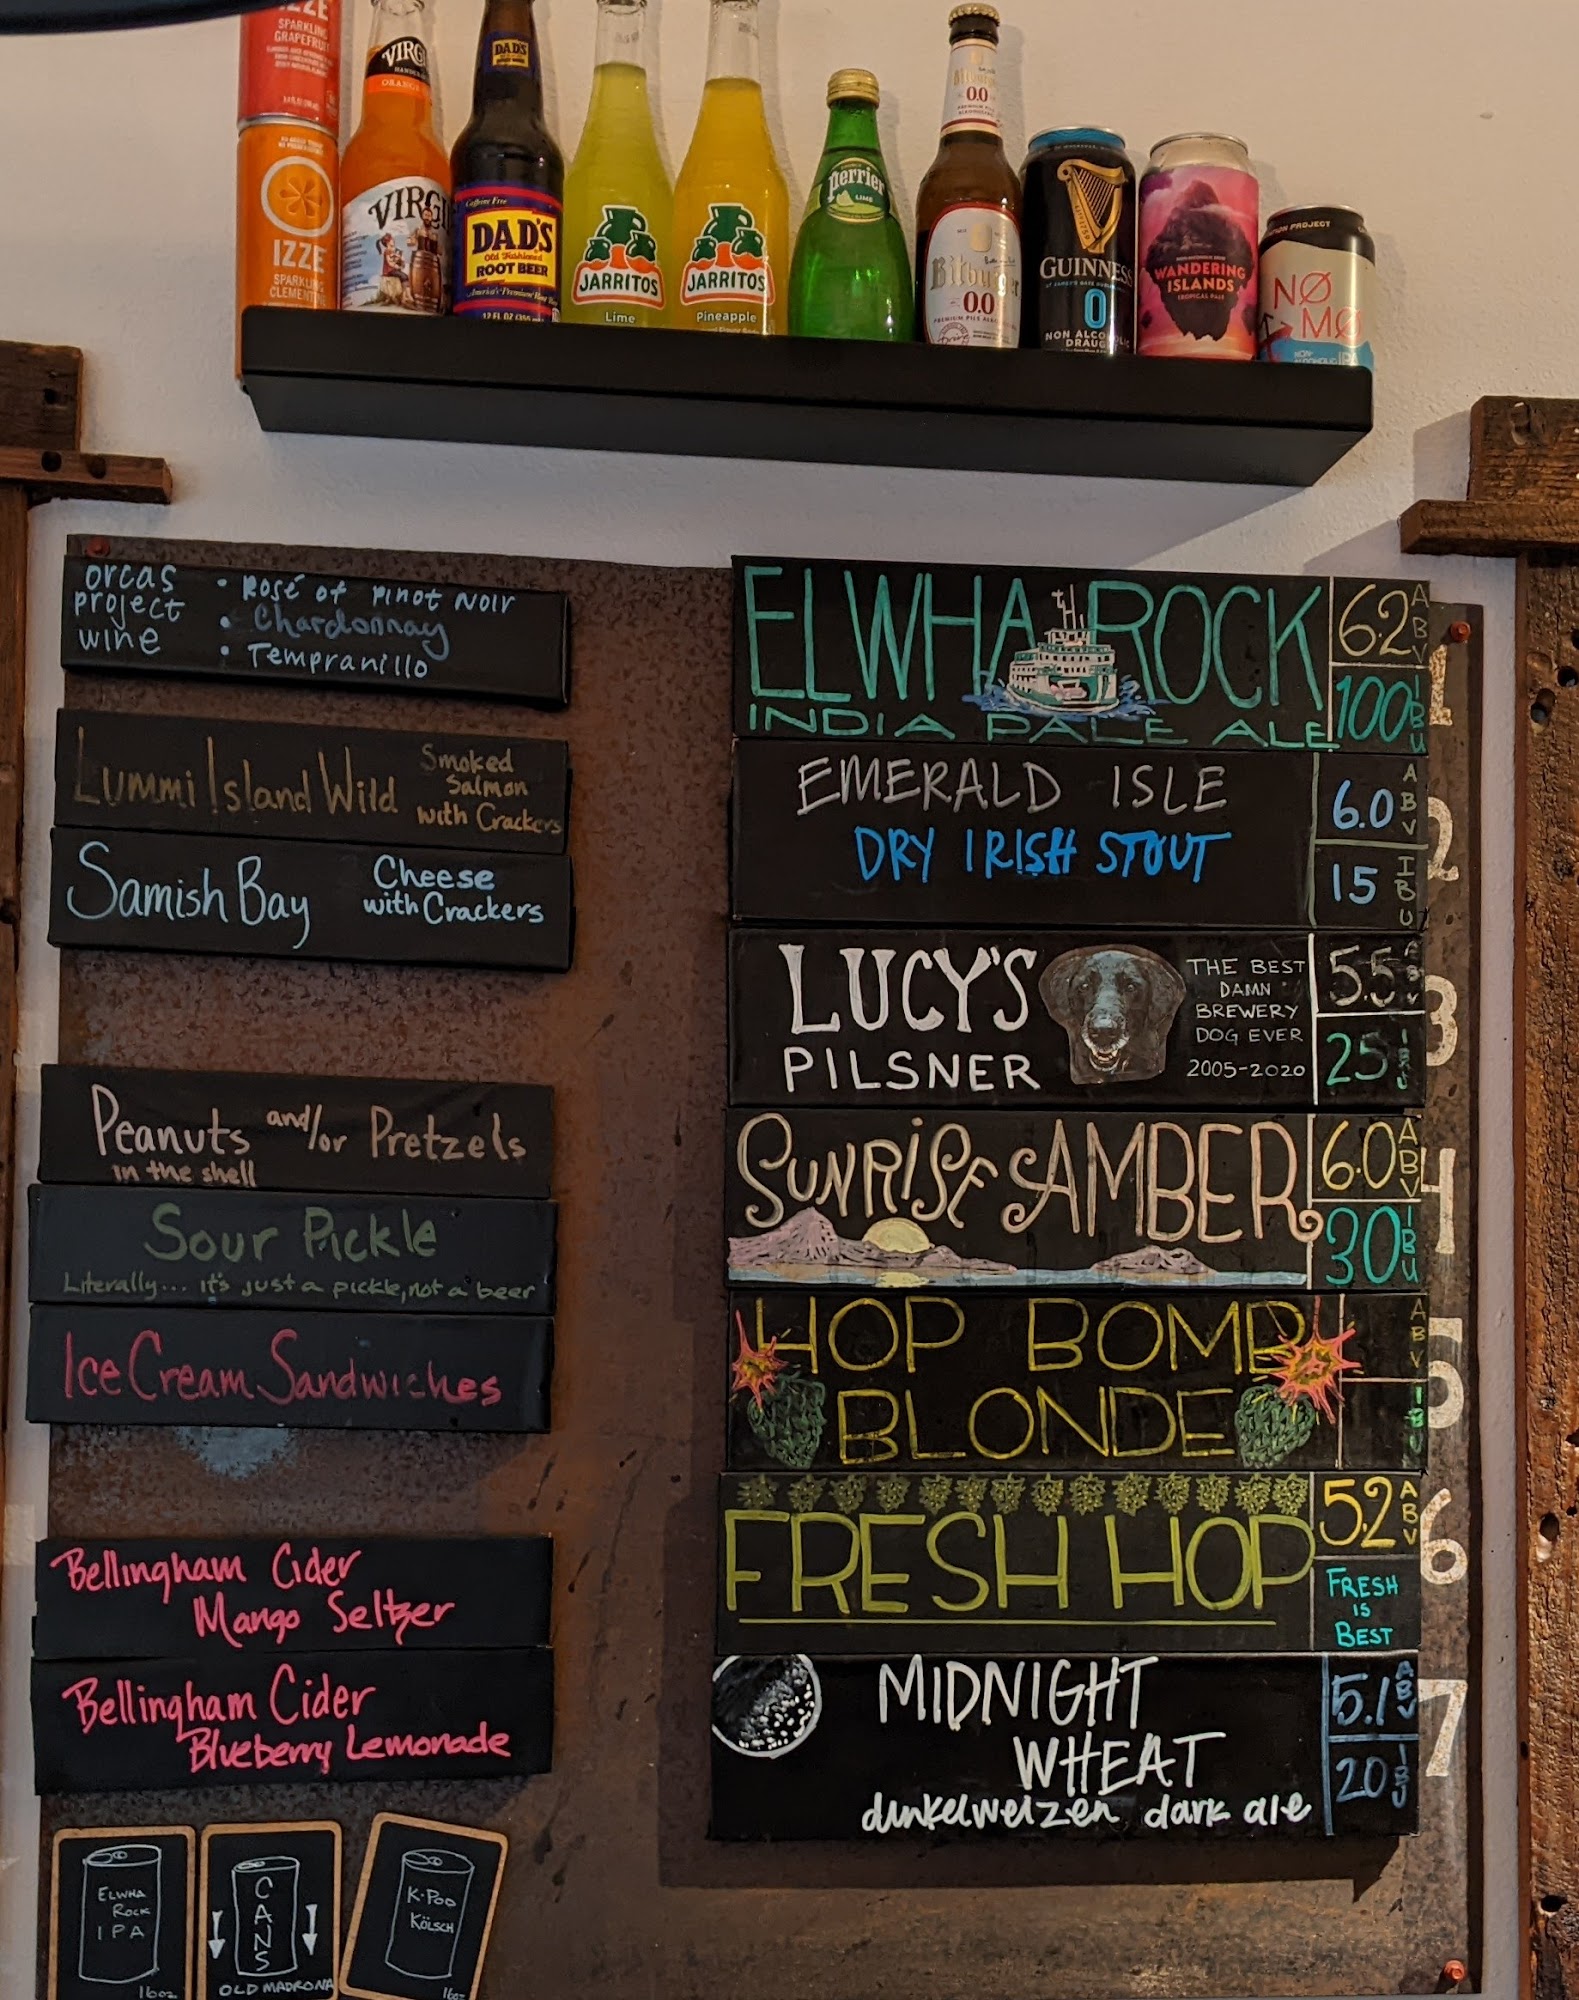 IZZE
SPARKLING
GRAPEFRUIT
IZZE
SPARKLING
CLEMENTINE
VIRGI
ORANGE
VIRGI
DAD'S
Caffeine Free
DAD'S
Old Fashioned
ROOT BEER
12 FL OZ (355
JARRITOS
Lime
JARRITOS
Pineapple
perrier
LIME
0.0
Bitburger
0.0
GUINNESS
0
NON ALCOHOLIC
DRAUGHT
WANDERING
ISLANDS
TROPICAL PALE
PROJECT
NØ
MØ
NON-
ALCOHOLIC IPA
orcas
project
wine
• Rosé of Pinot Noir
• Chardonnay
• Tempranillo
Lummi Island Wild
Smoked
Salmon
with Crackers
Samish Bay
Cheese
with Crackers
Peanuts and/or Pretzels
in the shell
Sour Pickle
Literally... it's just a pickle, not a beer
Ice Cream Sandwiches
Bellingham Cider
Mango Seltzer
Bellingham Cider
Blueberry Lemonade
ELWHA
ROCK
IPA
16oz
CANS
OLD MADRONA
K-POD
KÖLSCH
16oz
ELWHA ROCK
INDIA PALE ALE
6.2 ABV
100 IBU
1
EMERALD ISLE
DRY IRISH STOUT
6.0 ABV
15 IBU
2
LUCY'S
PILSNER
THE BEST
DAMN
BREWERY
DOG EVER
2005-2020
5.5 ABV
25 IBU
3
SUNRISE AMBER
6.0 ABV
30 IBU
4
HOP BOMB
BLONDE
ABV
IBU
5
FRESH HOP
5.2 ABV
FRESH
IS
BEST
6
MIDNIGHT
WHEAT
dunkelweizen dark ale
5.1 ABV
20 IBU
7